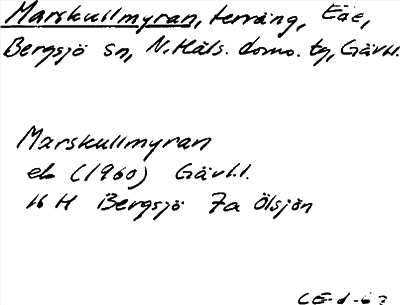 Marskullmyran, terräng, Eåe,
Bergsjö sn, N. Häls. doms. tg, Gävl.l.
Marskullmyran
eb (1960) Gävl.l.
16 H Bergsjö 7a Ölsjön